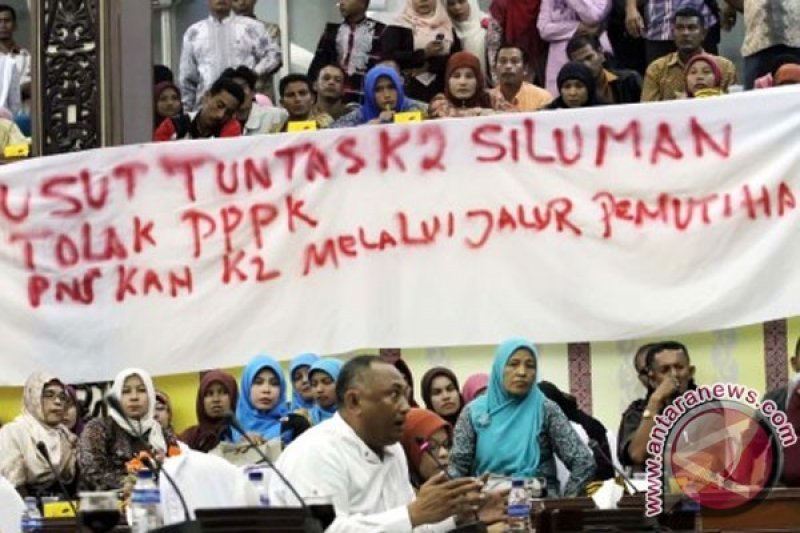 USUT TUNTAS K2 SILUMAN
TOLAK PPPK
PNS KAN K2 MELALUI JALUR PEMUTIHA
www.antaranews.com
antaranews.com